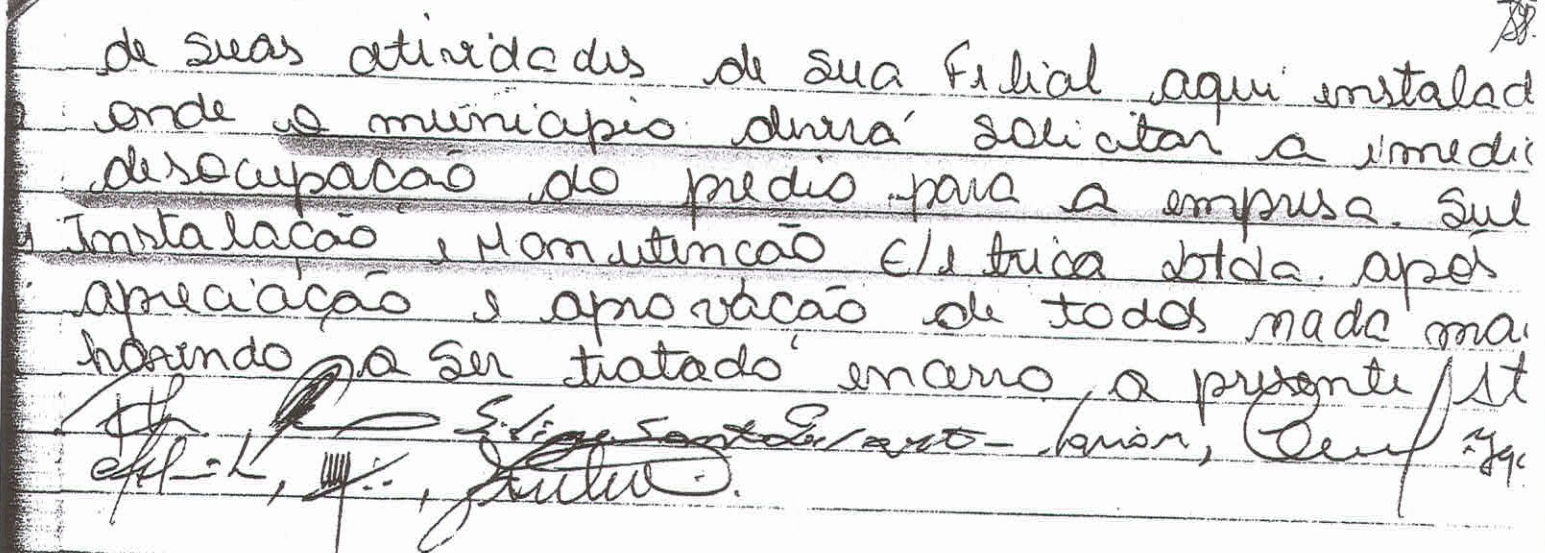 de suas atividades de sua Filial aqui instalad
onde o município deverá solicitar a imedi
desocupação do prédio para a empresa. Sul
Instalação e Manutencão Elétrica Ltda. após
apreciação e aprovação de todos nada mai
havendo a ser tratado encerro a presente At